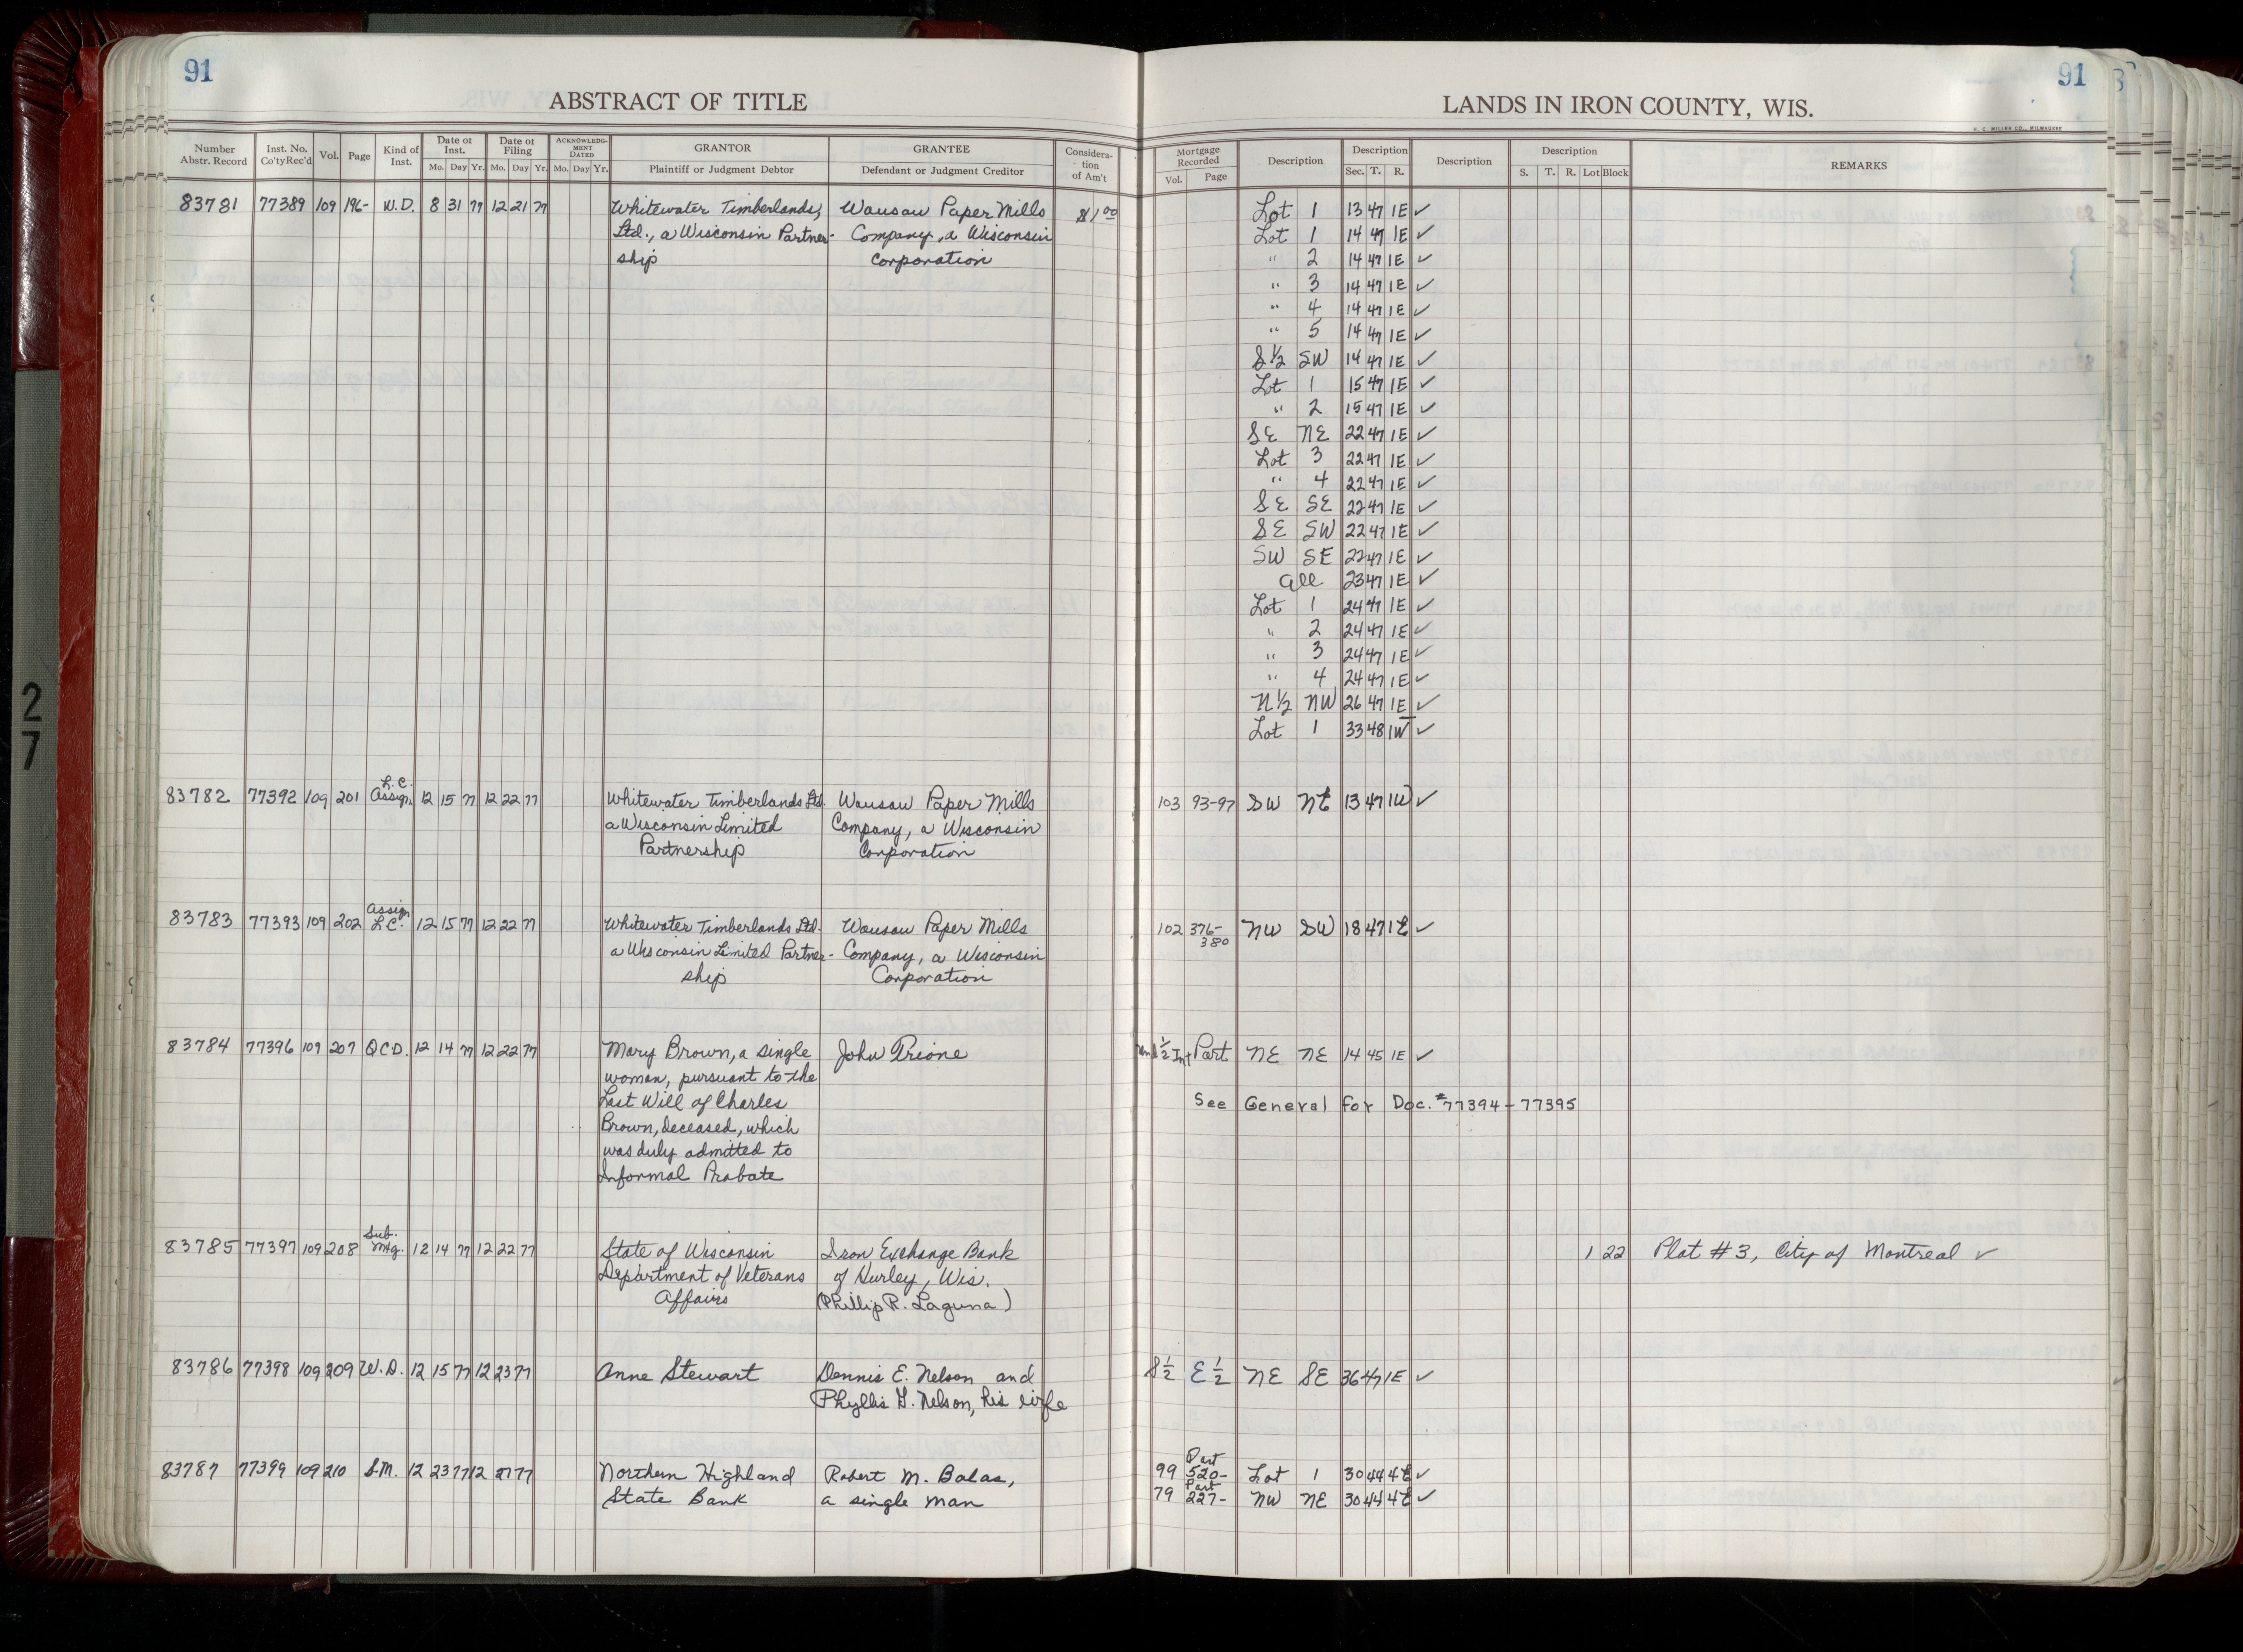 91
ABSTRACT OF TITLE
LANDS IN IRON COUNTY, WIS.
91
H. C. MILLER CO., MILWAUKEE
Number Abstr. Record | Inst. No. Co'ty Rec'd | Vol. | Page | Kind of Inst. | Date of Inst. Mo. Day Yr. | Date of Filing Mo. Day Yr. | ACKNOWLEDGMENT DATED Mo. Day Yr. | GRANTOR Plaintiff or Judgment Debtor | GRANTEE Defendant or Judgment Creditor | Consideration of Am't | Mortgage Recorded Vol. Page | Description | Description Sec. T. R. | Description | Description S. T. R. Lot Block | REMARKS
83781 77389 109 196- W.D. 8 31 77 12 21 77 Whitewater Timberlands, Wausau Paper Mills $1.00 Lot 1 13 47 1E ✓
Ltd., a Wisconsin Partner- Company, a Wisconsin Lot 1 14 47 1E ✓
ship Corporation " 2 14 47 1E ✓
" 3 14 47 1E ✓
" 4 14 47 1E ✓
" 5 14 47 1E ✓
S½ SW 14 47 1E ✓
Lot 1 15 47 1E ✓
" 2 15 47 1E ✓
SE NE 22 47 1E ✓
Lot 3 22 47 1E ✓
" 4 22 47 1E ✓
SE SE 22 47 1E ✓
SE SW 22 47 1E ✓
SW SE 22 47 1E ✓
all 23 47 1E ✓
Lot 1 24 47 1E ✓
" 2 24 47 1E ✓
" 3 24 47 1E ✓
" 4 24 47 1E ✓
N½ NW 26 47 1E ✓
Lot 1 33 48 1W ✓
83782 77392 109 201 L.C. Assign. 12 15 77 12 22 77 Whitewater Timberlands Ltd. Wausau Paper Mills 103 93-97 SW NE 13 47 1W ✓
a Wisconsin Limited Company, a Wisconsin
Partnership Corporation
83783 77393 109 202 Assign L.C. 12 15 77 12 22 77 Whitewater Timberlands Ltd. Wausau Paper Mills 102 376-380 NW SW 18 47 1E ✓
a Wisconsin Limited Partner- Company, a Wisconsin
ship Corporation
83784 77396 109 207 Q.C.D. 12 14 77 12 22 77 Mary Brown, a single John Prione Und ½ Int Part NE NE 14 45 1E ✓
woman, pursuant to the
Last Will of Charles See General for Doc. #77394-77395
Brown, deceased, which
was duly admitted to
Informal Probate
83785 77397 109 208 Sub. Mtg. 12 14 77 12 22 77 State of Wisconsin Iron Exchange Bank 1 22 Plat #3, City of Montreal ✓
Department of Veterans of Hurley, Wis.
Affairs (Phillip R. Laguna)
83786 77398 109 209 W.D. 12 15 77 12 23 77 Anne Stewart Dennis E. Nelson and S½ E½ NE SE 36 47 1E ✓
Phyllis G. Nelson, his wife
83787 77399 109 210 S.M. 12 23 77 12 27 77 Northern Highland Robert M. Balas, 99 Part 520- Lot 1 30 44 4E ✓
State Bank a single man 79 Part 227- NW NE 30 44 4E ✓
27